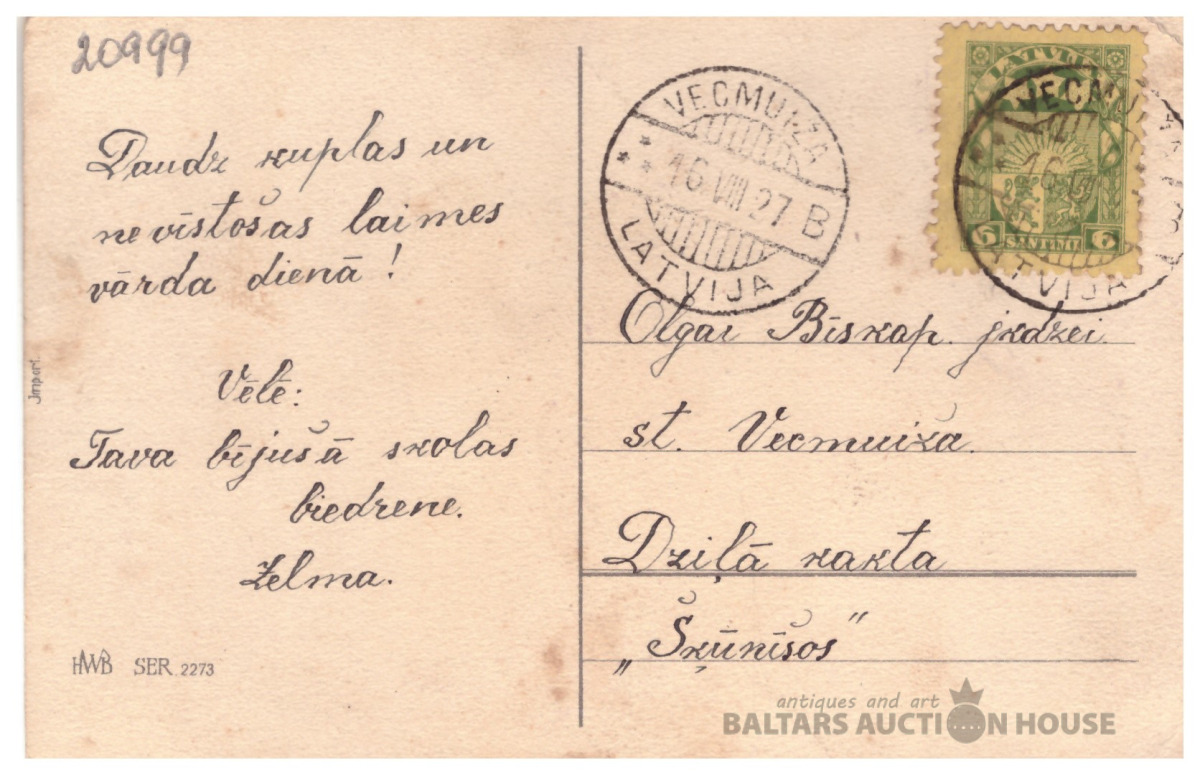 20999
Daudz kuplas un
nevīstošas laimes
vārda dienā!
Vēlē:
Tava bījušā skolas
biedrene.
Zelma.
Import
HWB SER. 2273
VECMUIŽA
16 VIII 27 B
LATVIJA
LATVIJA
VECMUIŽA
16 VIII
LATVIJA
6 SANTIMI 6
Olgai Bīskap. jkdzei.
st. Vecmuiža.
Dziļā kakta
„Šķūnīšos”
antiques and art
BALTARS AUCTION HOUSE